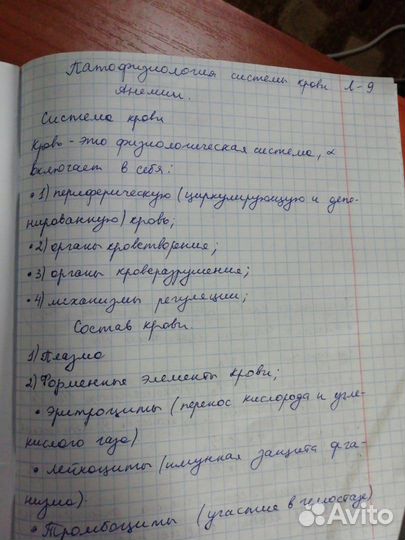 Патофизиология системы крови Л-9
Анемии.
Система крови
Кровь - это физиологическая система,
включает в себя:
• 1) периферическую (циркулирующую и депо-
нированную) кровь;
• 2) органы кроветворения;
• 3) органы кроверазрушения;
• 4) механизмы регуляции;
Состав крови
1) Плазма
2) Форменные элементы крови;
• эритроциты (перенос кислорода и угле-
кислого газа)
• лейкоциты (имунная защита орга-
низма).
• Тромбоциты (участие в гемостазе)
Avito